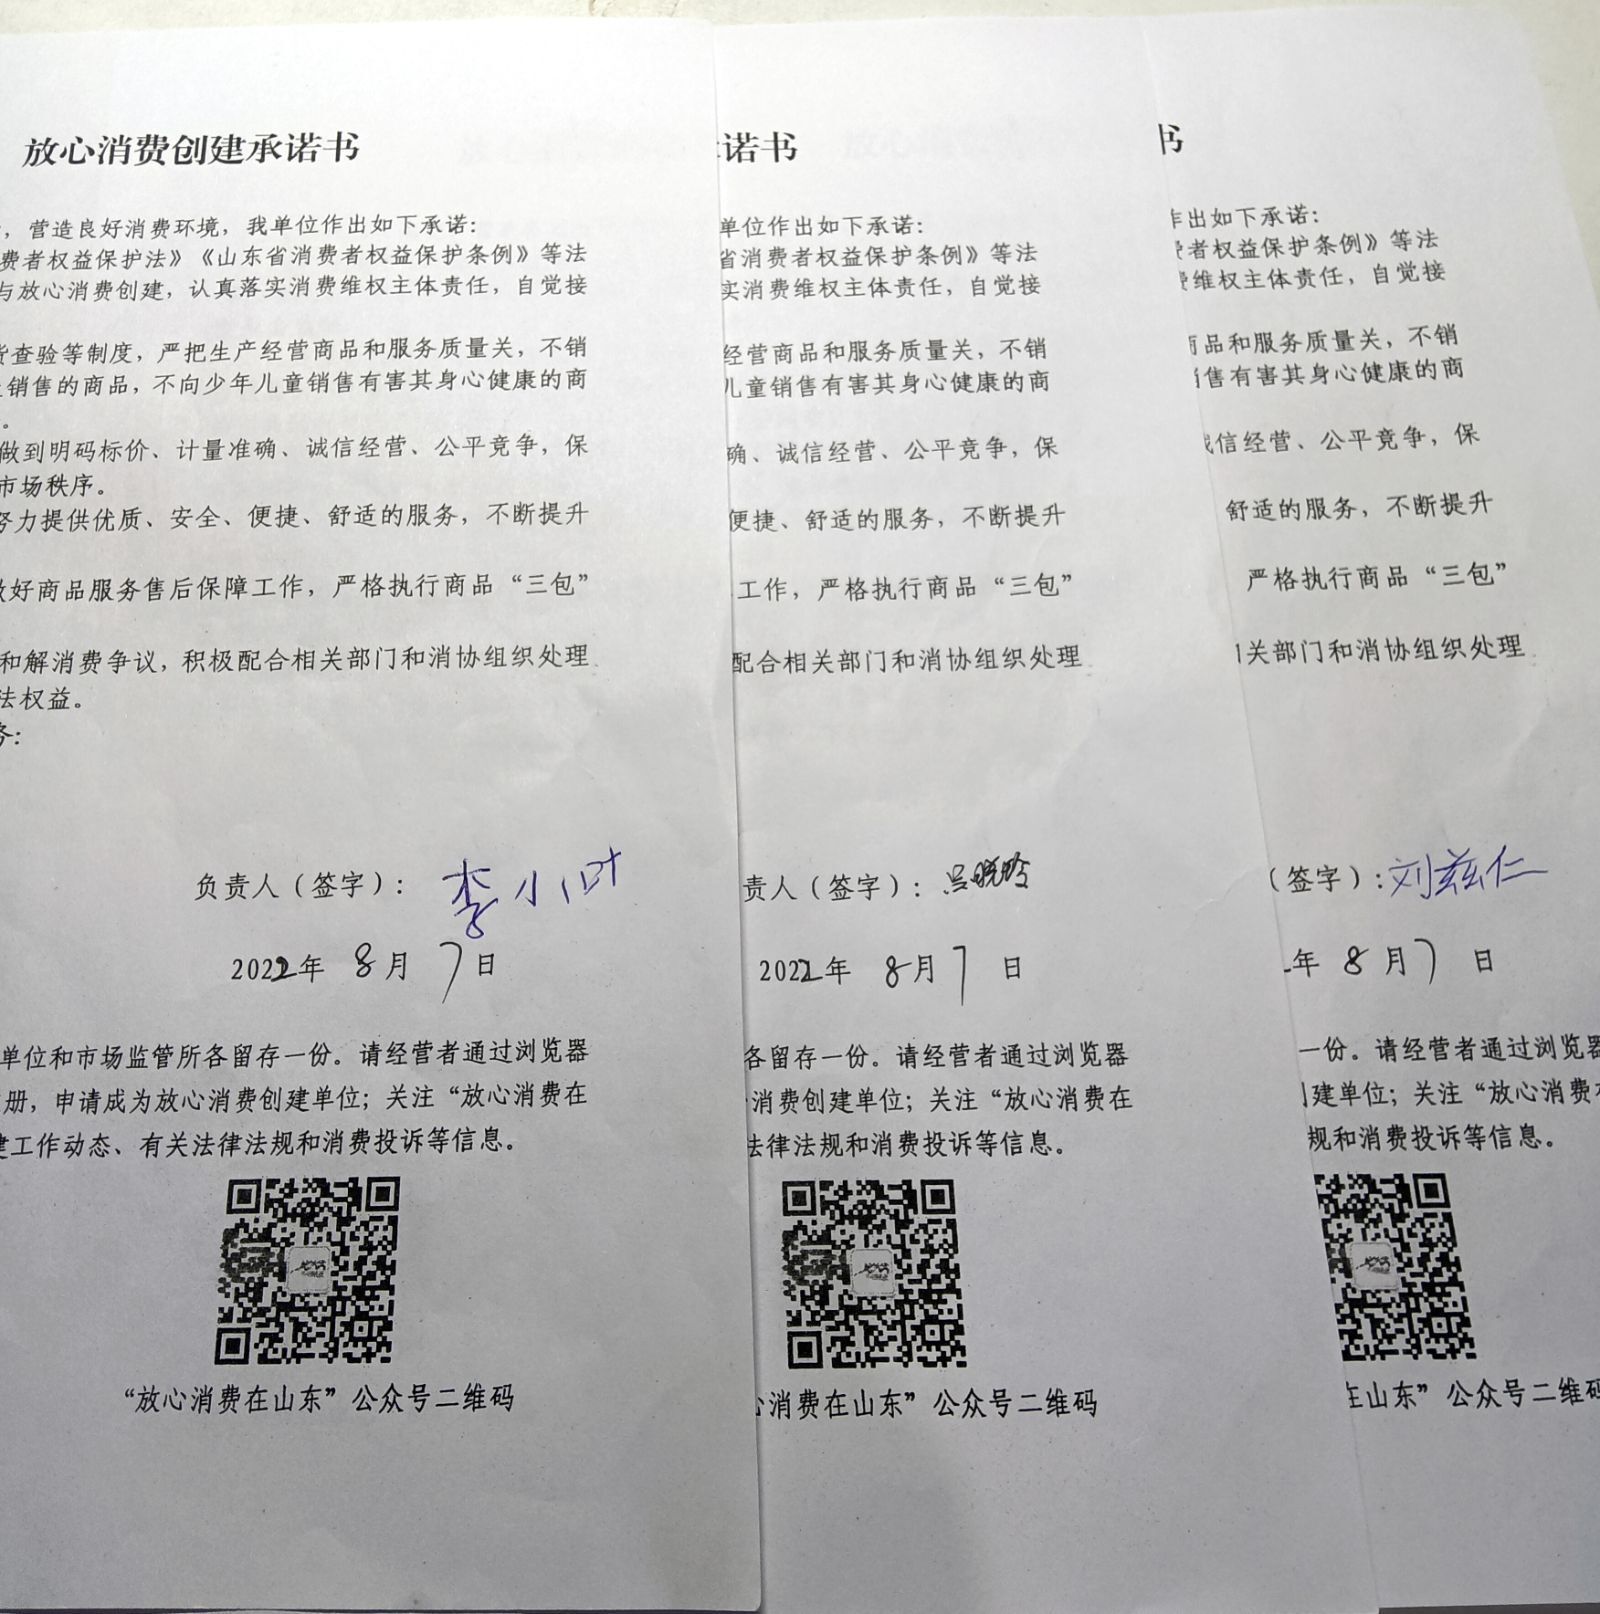 放心消费创建承诺书
，营造良好消费环境，我单位作出如下承诺：
费者权益保护法》《山东省消费者权益保护条例》等法
与放心消费创建，认真落实消费维权主体责任，自觉接
货查验等制度，严把生产经营商品和服务质量关，不销
销售的商品，不向少年儿童销售有害其身心健康的商
。
做到明码标价、计量准确、诚信经营、公平竞争，保
市场秩序。
努力提供优质、安全、便捷、舒适的服务，不断提升
做好商品服务售后保障工作，严格执行商品“三包”
和解消费争议，积极配合相关部门和消协组织处理
法权益。
务：
负责人（签字）：李小叶
2022年 8月 7日
单位和市场监管所各留存一份。请经营者通过浏览器
册，申请成为放心消费创建单位；关注“放心消费在
建工作动态、有关法律法规和消费投诉等信息。
“放心消费在山东”公众号二维码
诺书
单位作出如下承诺：
省消费者权益保护条例》等法
实消费维权主体责任，自觉接
经营商品和服务质量关，不销
儿童销售有害其身心健康的商
确、诚信经营、公平竞争，保
便捷、舒适的服务，不断提升
工作，严格执行商品“三包”
配合相关部门和消协组织处理
责人（签字）：吕晓玲
2022年 8月7 日
各留存一份。请经营者通过浏览器
消费创建单位；关注“放心消费在
法律法规和消费投诉等信息。
心消费在山东”公众号二维码
书
作出如下承诺：
费者权益保护条例》等法
费维权主体责任，自觉接
商品和服务质量关，不销
销售有害其身心健康的商
诚信经营、公平竞争，保
舒适的服务，不断提升
严格执行商品“三包”
相关部门和消协组织处理
（签字）：刘兹仁
年 8月7 日
一份。请经营者通过浏览器
创建单位；关注“放心消费在
规和消费投诉等信息。
在山东”公众号二维码